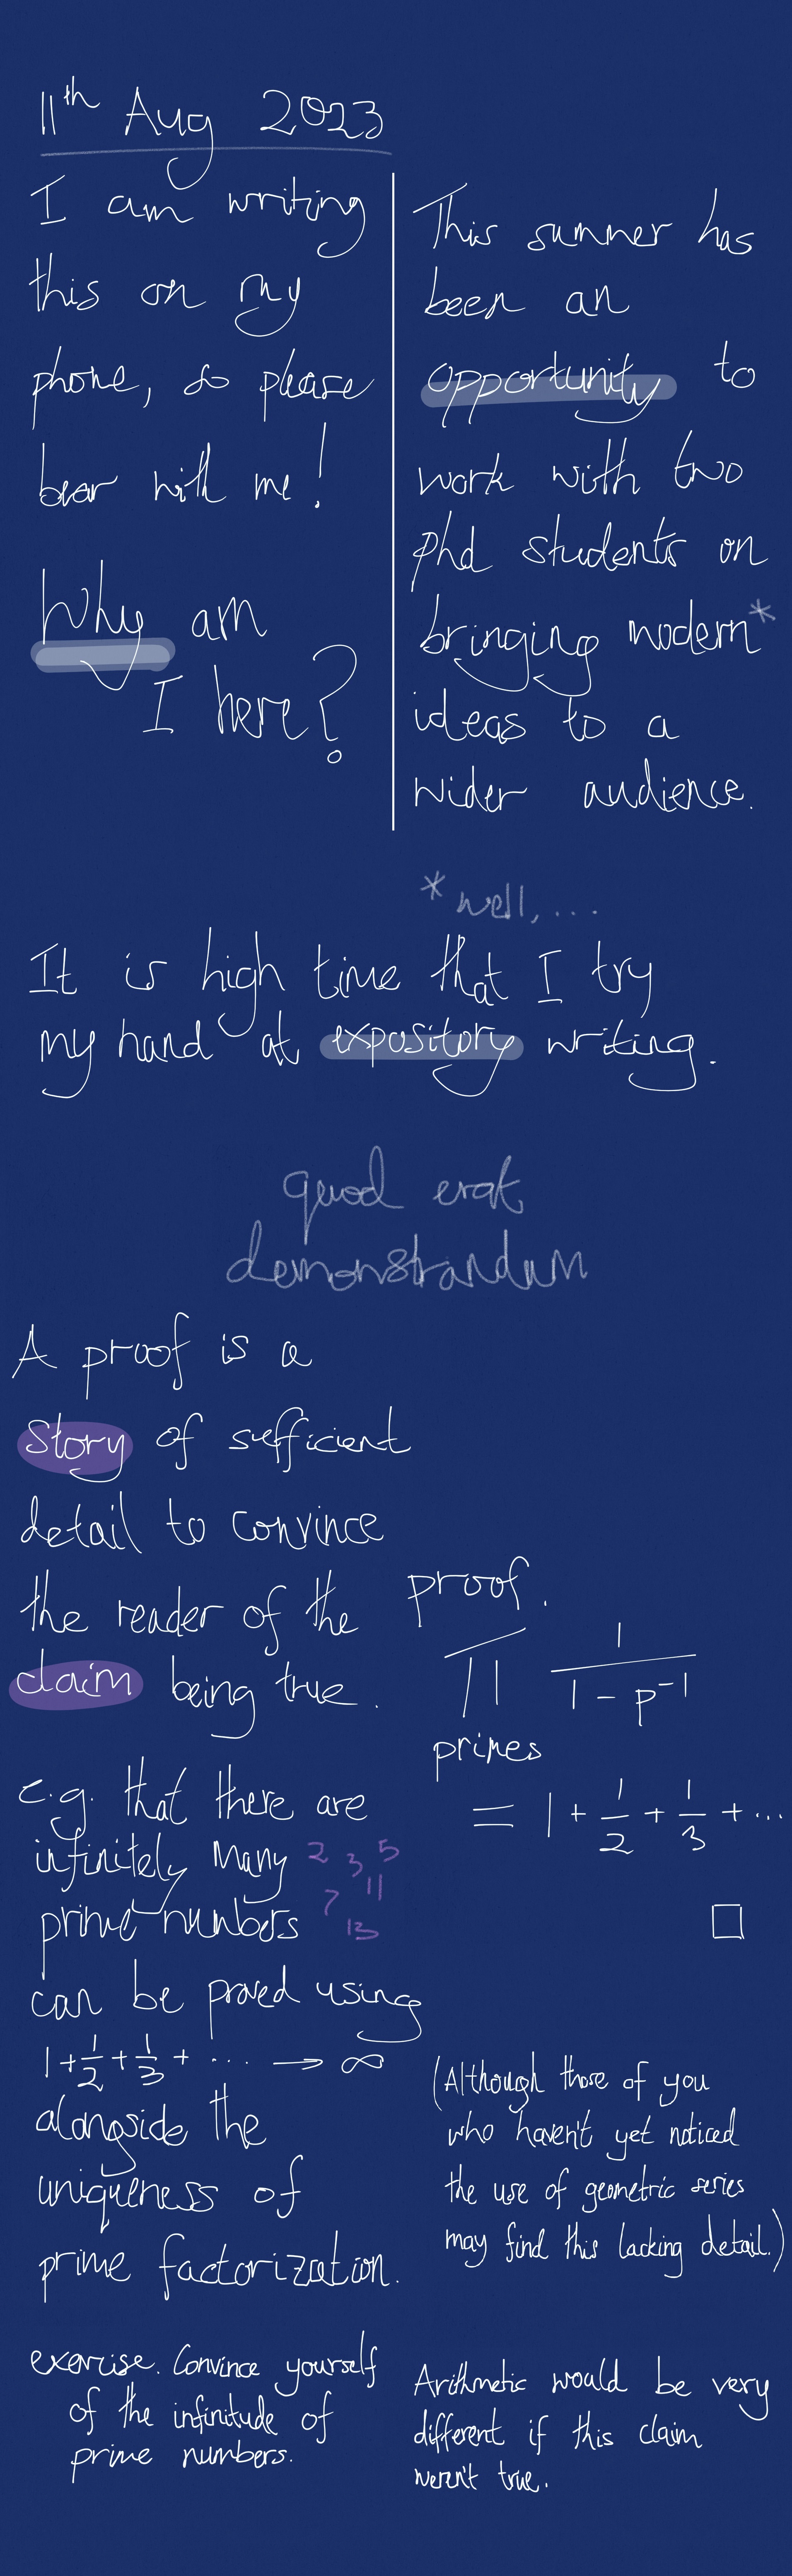 11th Aug 2023
I am writing
this on my
phone, so please
bear with me!
Why am
I here?
This summer has
been an
opportunity to
work with two
phd students on
bringing modern*
ideas to a
wider audience.
* well, ...
It is high time that I try
my hand at expository writing.
quod erat
demonstrandum
A proof is a
story of sufficient
detail to convince
the reader of the
claim being true.
e.g. that there are
infinitely many
prime numbers
2 3 5
7 11
13
can be proved using
1 + 1/2 + 1/3 + ... → ∞
alongside the
uniqueness of
prime factorization.
proof.
∏ 1/(1 - p⁻¹)
primes
= 1 + 1/2 + 1/3 + ...
□
(Although those of you
who haven't yet noticed
the use of geometric series
may find this lacking detail.)
exercise. Convince yourself
of the infinitude of
prime numbers.
Arithmetic would be very
different if this claim
weren't true.